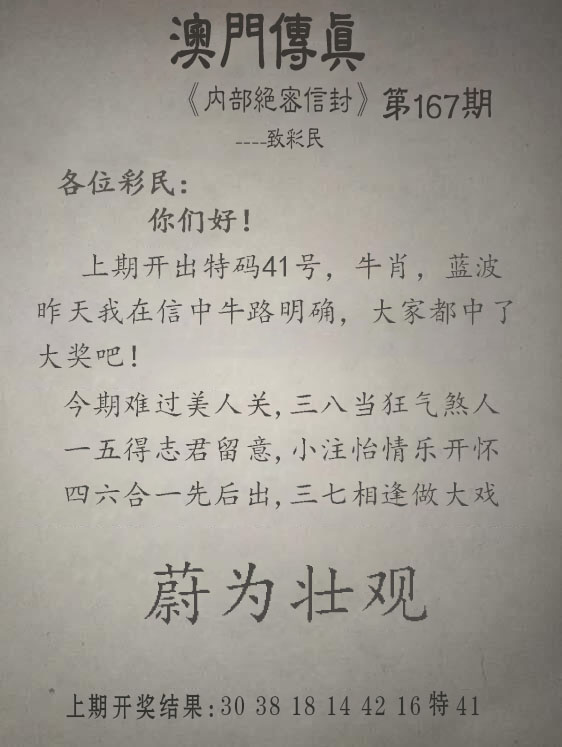 澳門傳真
《内部絕密信封》第167期
----致彩民
各位彩民：
你们好！
上期开出特码41号，牛肖，蓝波
昨天我在信中牛路明确，大家都中了
大奖吧！
今期难过美人关,三八当狂气煞人
一五得志君留意,小注怡情乐开怀
四六合一先后出,三七相逢做大戏
蔚为壮观
上期开奖结果:30 38 18 14 42 16 特 41